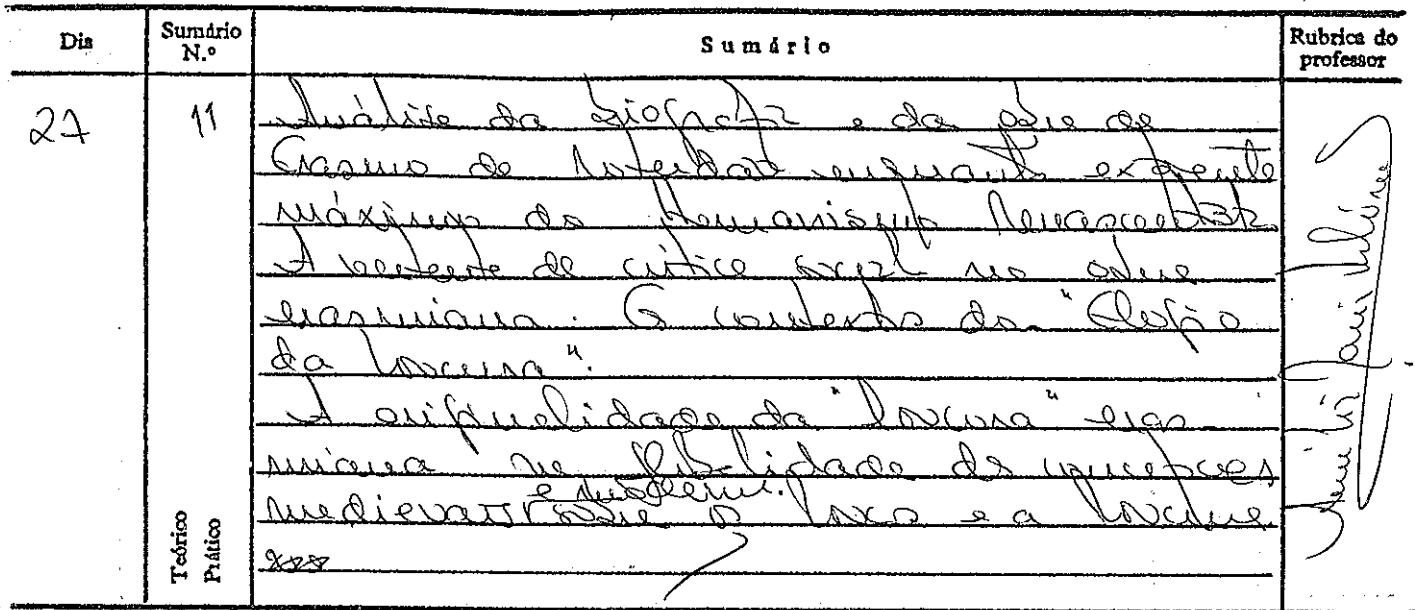 Dia Sumário N.º Sumário Rubrica do professor
27 11 Análise da biografia e da obra de
Erasmo de Roterdão enquanto expoente
máximo do Humanismo Renascentista
A vertente de crítica social na obra
erasmiana. O contexto do "Elogio
da Loucura".
A originalidade da "loucura" eras-
miana na de concepções
e modernas
medievais sobre o louco e a loucura
Teórico
Prático